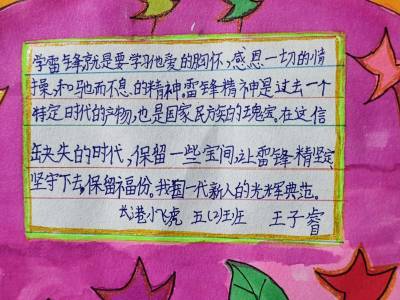 学雷锋就是要学习他爱的胸怀,感恩一切的情
操,和驰而不息的精神。雷锋精神是过去一个
特定时代的产物,也是国家民族的瑰宝。在这信
缺失的时代,保留一些宝间,让雷锋精坚定
坚守下去,保留福份。我国一代新人的光辉典范。
长港小飞虎 五(2)班 王子睿